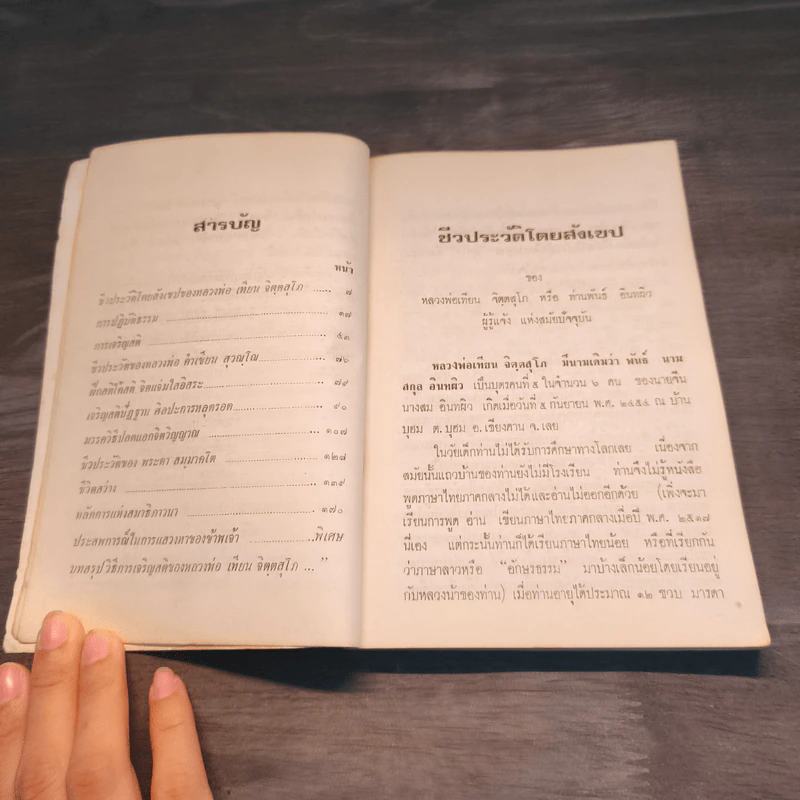 สารบัญ
หน้า
ชีวประวัติโดยสังเขปของหลวงพ่อ เทียน จิตฺตสุโภ ...... ๗
การปฏิบัติธรรม ๑๗
การเจริญสติ ๕๓
ชีวประวัติของหลวงพ่อ คำเขียน สุวณฺโณ ๗๖
ฝึกสติให้สติ จิตแจ่มใสอิสระ ๗๙
เจริญสติปัฏฐาน ศิลปะการหลุดรอด ๙๐
มรรควิธีปอดแอกจิตวิญญาณ ๑๐๗
ชีวประวัติของ พระดา สมฺมาคโต ๑๒๘
ชีวิตสว่าง ๑๓๙
หลักการแห่งสมาธิภาวนา ๑๗๐
ประสพการณ์ในการแสวงหาของข้าพเจ้า พิเศษ
บทสรุปวิธีการเจริญสติของหลวงพ่อ เทียน จิตฺตสุโภ ... ”
ชีวประวัติโดยสังเขป
ของ
หลวงพ่อเทียน จิตฺตสุโภ หรือ ท่านพันธ์ อินทผิว
ผู้รู้แจ้ง แห่งสมัยปัจจุบัน
หลวงพ่อเทียน จิตฺตสุโภ มีนามเดิมว่า พันธ์ นาม
สกุล อินทผิว เป็นบุตรคนที่ ๕ ในจำนวน ๖ คน ของนายจีน
นางสม อินทผิว เกิดเมื่อวันที่ ๕ กันยายน พ.ศ. ๒๔๕๔ ณ บ้าน
บุฮม ต. บุฮม อ. เชียงคาน จ. เลย
ในวัยเด็กท่านไม่ได้รับการศึกษาทางโลกเลย เนื่องจาก
สมัยนั้นแถวบ้านของท่านยังไม่มีโรงเรียน ท่านจึงไม่รู้หนังสือ
พูดภาษาไทยภาคกลางไม่ได้และอ่านไม่ออกอีกด้วย (เพิ่งจะมา
เรียนการพูด อ่าน เขียนภาษาไทยภาคกลางเมื่อปี พ.ศ. ๒๕๑๗
นี่เอง แต่กระนั้นท่านก็ได้เรียนภาษาไทยน้อย หรือที่เรียกกัน
ว่าภาษาลาวหรือ “อักษรธรรม” มาบ้างเล็กน้อยโดยเรียนอยู่
กับหลวงน้าของท่าน) เมื่อท่านอายุได้ประมาณ ๑๒ ขวบ มารดา